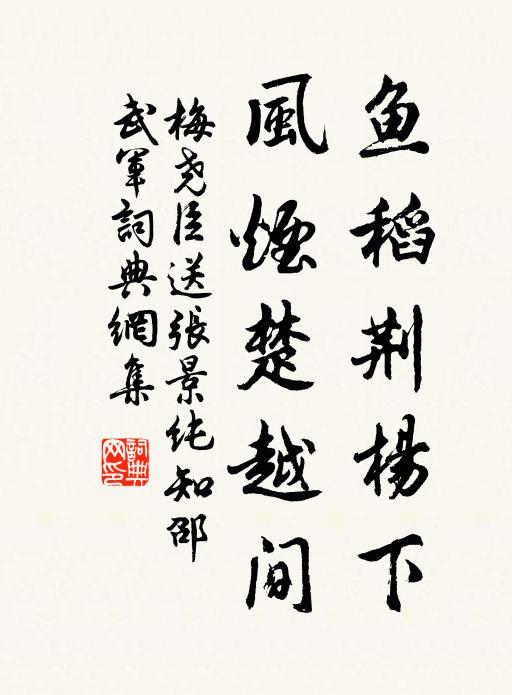 鱼稻荆楊下
風煙楚越间
梅尧臣送張景纯知邵
武軍詞典網集
詞典网印